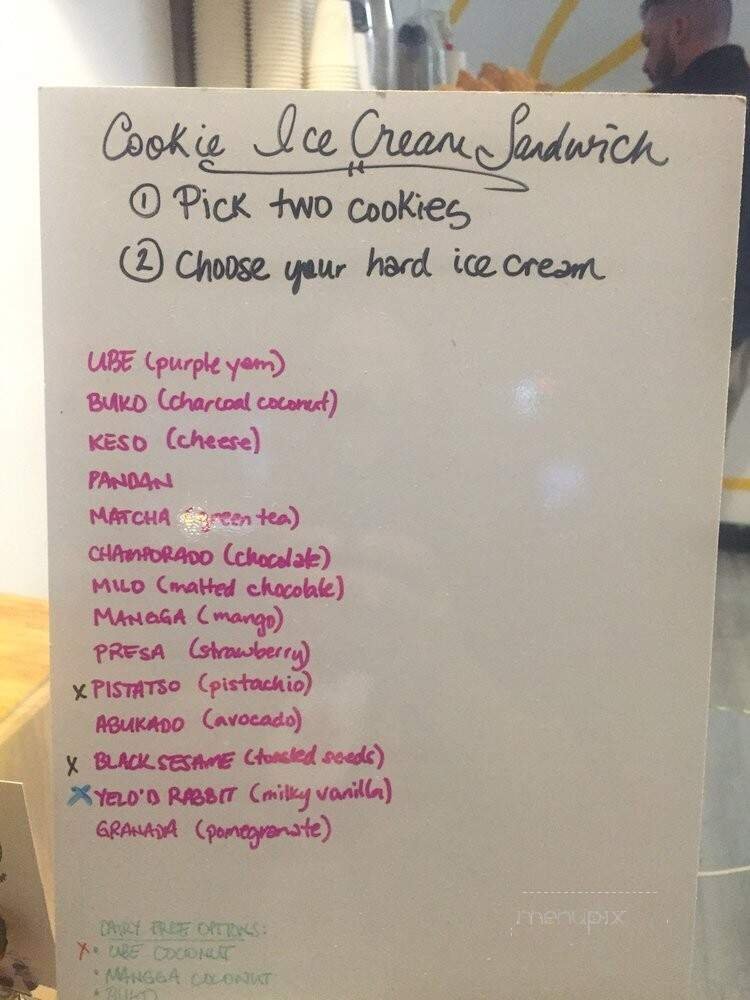 Cookie Ice Cream Sandwich
① Pick two cookies
② Choose your hard ice cream
UBE (purple yam)
BUKO (charcoal coconut)
KESO (cheese)
PANDAN
MATCHA (green tea)
CHAMPORADO (chocolate)
MILO (malted chocolate)
MANGGA (mango)
PRESA (strawberry)
x PISTATSO (pistachio)
ABUKADO (avocado)
x BLACK SESAME (toasted seeds)
x YELO'D RABBIT (milky vanilla)
GRANADA (pomegranate)
DAIRY FREE OPTIONS:
x • UBE COCONUT
• MANGGA COCONUT
• BUKO
menupix